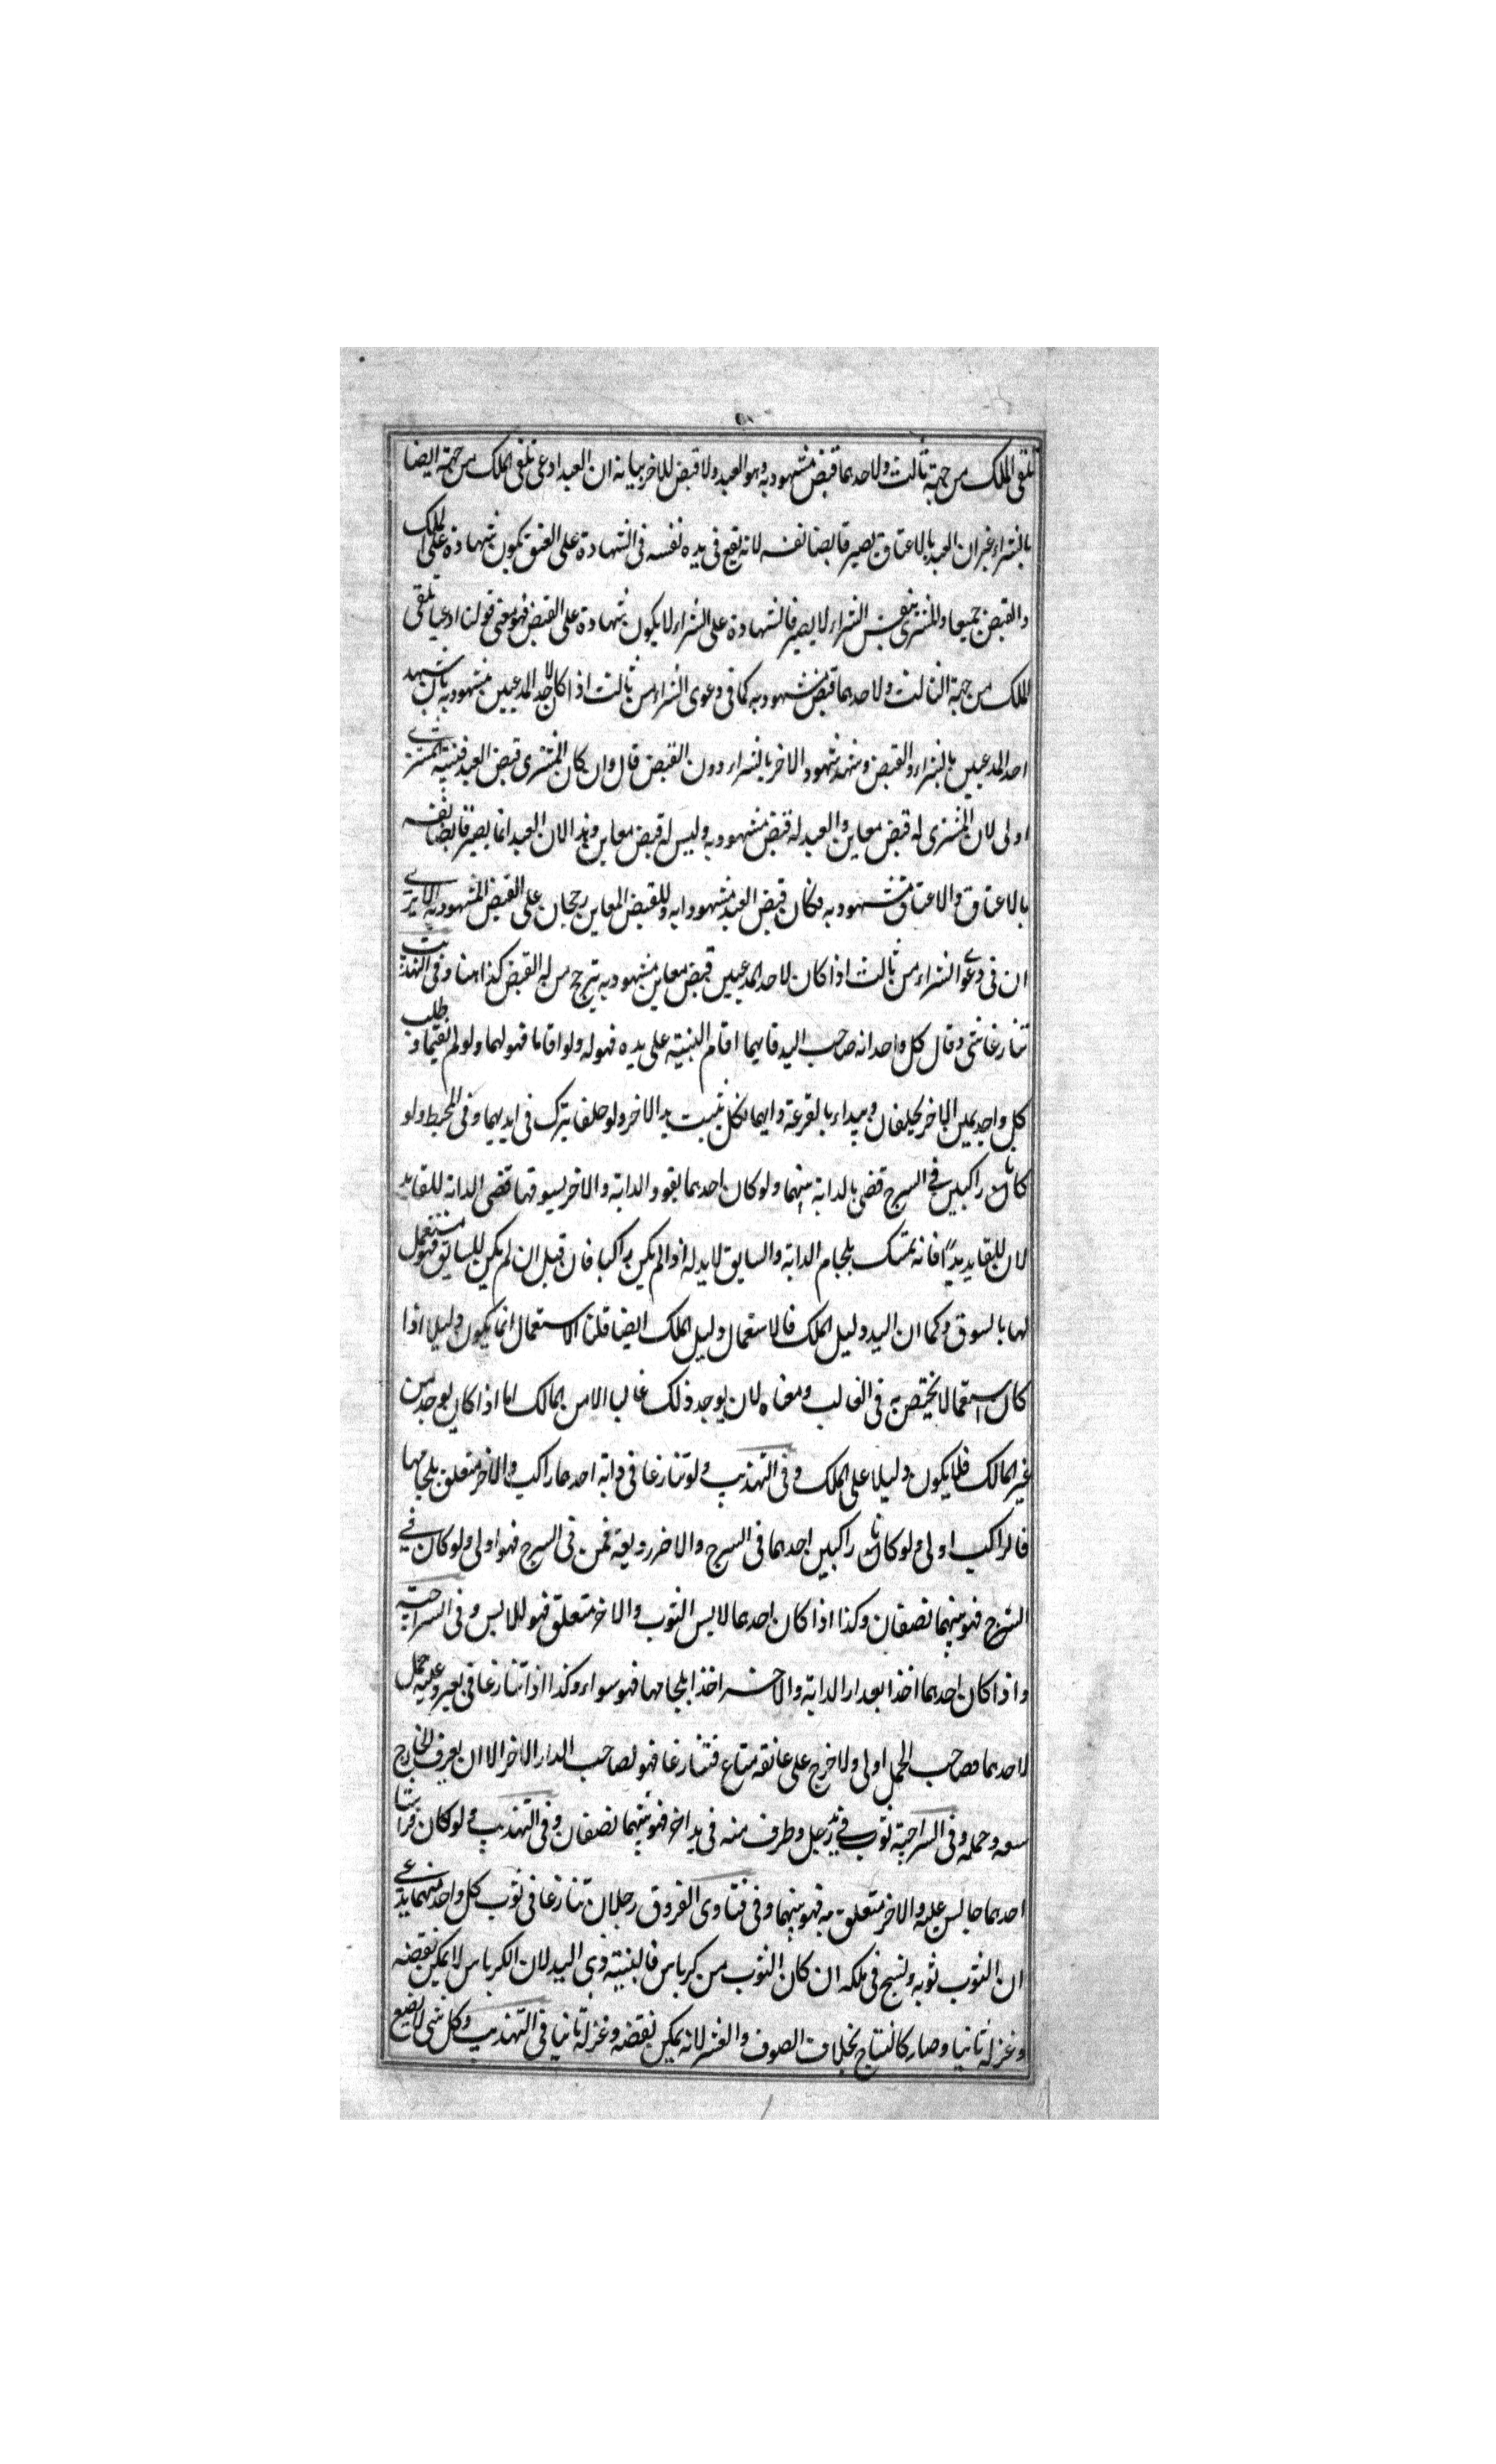 تلقى الملك من جهة ثالث ولاحدهما قبض مشهود به وهو العبد ولا قبض للاخر بيانه ان العبد ادعى تلقى الملك من جهة ايضا
بالشراء غير ان العبد بالاعتاق يصير قابضا نفسه لانه يقع فى يده نفسه فى الشهادة على العتق يكون شهادة على الملك
والقبض جميعا والمشترى بنفس الشراء لا يصير فالشهادة على الشراء لا يكون شهادة على القبض فهو معنى قولنا ادعيا تلقى
الملك من جهة الثالث ولاحدهما قبض مشهود به كما فى دعوى الشراء من ثالث اذا كان لاحد المدعيين مشهود به بان شهد
احد المدعيين بالشراء والقبض وشهد شهود الاخر بالشراء دون القبض قال وان كان المشترى قبض العبد فبينة المشترى
اولى لان المشترى له قبض معاين والعبد له قبض مشهود به وليس له قبض معاين وهذا لان العبد انما يصير قابضا نفسه
بالاعتاق والاعتاق مشهود به فكان قبض العبد مشهودا به وللقبض المعاين رجحان على القبض المشهود به الا يرى
ان فى دعوا الشراء من ثالث اذا كان لاحد المدعيين قبض معاين مشهود به يترجح من له القبض كذا هنا وفى التهذيب
تنازعا شى وقال كل واحد انه صاحب اليد فايهما اقام البينة على يده فهو له ولو اقاما فهو لهما ولو لم يقيما وطلب
كل واحد يمين الاخر يحلفان ويبداء بالقرعة وايهما نكل يثبت يد الاخر ولو حلفا يترك فى ايديهما وفى المحيط ولو
كانا راكبين فى السرج قضى بالدابة بينهما ولو كان احدهما يقود الدابة والاخر يسوقها قضى الدابة للقايد
لان للقايد يدا فانه يمسك بلجام الدابة والسايق لا يد له اذا لم يكن راكبا فان قيل ان لم يكن للسايق فهو مستعمل
لها بالسوق وكما ان اليد دليل الملك فالاستعمال دليل الملك ايضا قلنا الاستعمال انما يكون دليلا اذا
كان استعمالا يختص به فى الغالب ومعناه لان يوجد ذلك غالبا الا من المالك اما اذا كان يوجد من
غير المالك فلا يكون دليلا على الملك وفى التهذيب ولو تنازعا فى دابة احدها راكب والاخر متعلق بلجامها
فالراكب اولى ولو كانا راكبين احدهما فى السرج والاخر رديفه فمن فى السرج فهو اولى ولو كان فى
السرج فهو بينهما نصفان وكذا اذا كان احدهما لابس الثوب والاخر متعلق فهو لللابس وفى السراجية
واذا كان احدهما اخذا بعدار الدابة والاخر اخذا بلجامها فهو سواء وكذا اذا تنازعا فى بعير وعليه حمل
لاحدهما فصاحب الحمل اولى ولا خرج على عاتقه متاع فتنازعا فهو لصاحب الدار الاخر الا ان يعرف الخارج
وحمله وفى السراجية ثوب فى يد رجل وطرف منه فى يد اخر فهو بينهما نصفان وفى التهذيب ولو كان فراشا
احدهما جالس عليه والاخر متعلق به فهو بينهما وفى فتاوى الفروق رجلان تنازعا فى ثوب كل واحد منهما يدعى
ان الثوب ثوبه ونسج فى ملكه ان كان الثوب من كرباس فالبينة ذى اليد لان الكرباس لا يمكن نقضه
وغزله ثانيا وصار كالنتاج بخلاف الصوف والغزل لانه يمكن نقضه وغزله ثانيا فى التهذيب وكل شى لا يضيع